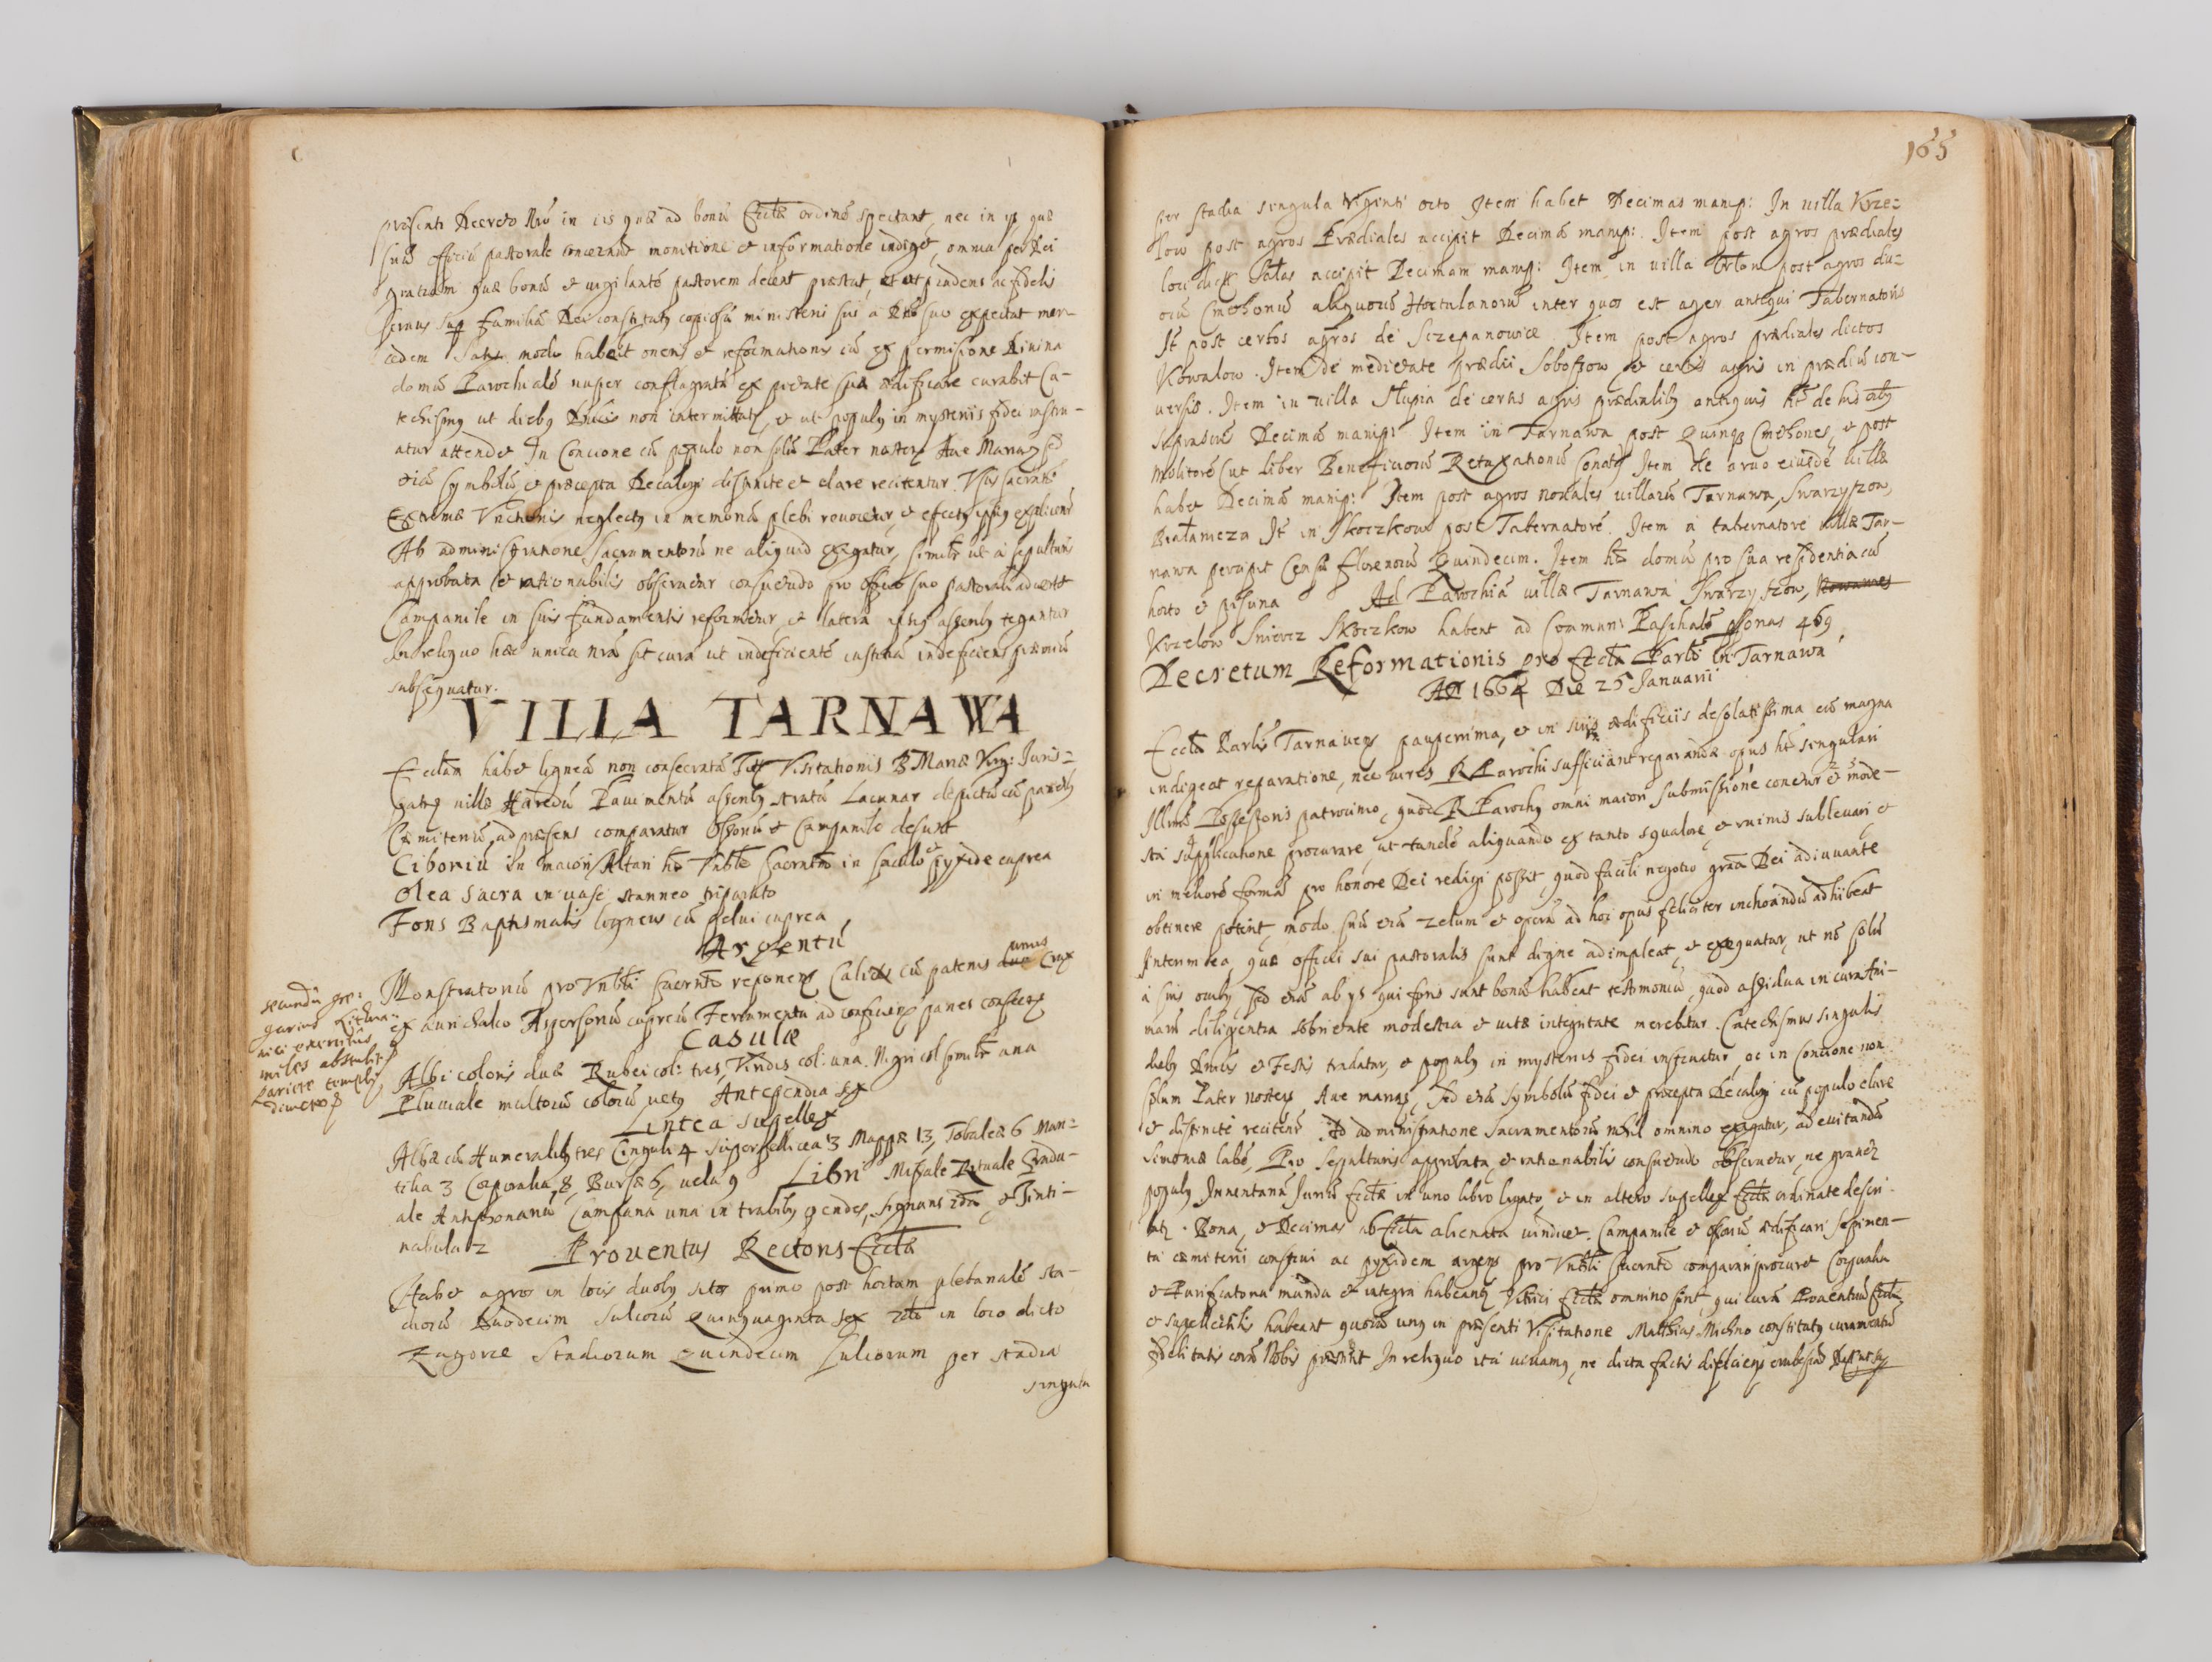 præsenti Decreto Nrõ in iis quæ ad bonũ Ecclæ ordinẽ spectant, nec in ijs quæ
suũ officiũ pastorale concernunt monitione et informatione indiget, omnia per Dei
gratiam quæ bonũ et vigilantẽ pastorem decent præstat, et ut prudens ac fidelis
servus familiã Dei constitutus ministerii sui a Dño suo expectat mer-
cedem modo habeat oneris et reformationis cũ ex permissione Divina
domũ Parochialẽ nuper conflagratã ex pietate sua ædificare curabit Ca-
techismus ut diebus Dñicis non intermittatur, et ut populus in mysteriis fidei instru-
atur attendet In Concione cũ populo non solũ Pater noster Ave Maria sed
etiã symbolũ et præcepta Decalogi distincte et clare recitentur. Usus sacramti
Extremæ Unctionis neglectus in memoriã plebi revocetur, et effectus ipsius explicent
Ab administratione sacramentorũ ne aliquid exigatur, similr ut a sepulturis
approbata et rationabilis observetur consuetudo pro officio suo pastorali advertet
Campanile in suis fundamentis reformetur, et latera ipsius asseribus tegantur
In reliquo hæc unica nrã sit cura ut indeficientẽ justitiã indeficiens præmiũ
subsequatur.
VILLA TARNAWA
Ecclam habet ligneã non consecratã Titt Visitationis B Mariæ Virg: Juris=
patrq villæ Hæredũ Pavimentũ asseribus stratũ Lacunar depictũ cũ parietibus
Cæmiteriũ ad præsens comparatur Ossoriũ et Campanile desunt
Ciboriũ in maiori Altari ht Vnble Sacramtũ in sacculo et pyxide cuprea
Olea Sacra in vase stanneo tripartito
Fons Baptismatis ligneus cũ pelvi cuprea
Argentũ
Monstratoriũ pro Vnbli Sacramto reponen Calices cũ patenis duo unus Crux
ex aurichalco Aspersoriũ cupreũ Ferramenta ad conficien panes consecr
secundũ gre:
miles abstulit
pariete templi
Casulæ
Albi coloris duæ Rubei col: tres, Viridis col: una. Nigri col similr una
Pluviale multorũ colorũ vetus Antependia sex
Lintea supellex
Albæ cũ Humeralibus tres Cinguli 4 superpellicea 3 Mappæ 13, Tobaleæ 6 Man=
tilia 3 Corporalia 8, Bursæ 6, vela 9 Libri Missale Rituale Gradu-
ale Antiphonariũ Campana una in trabibus pendes, signans 2da, et Tinti-
nabula 2 Proventus Rectoris Eccla
Habet agros in locis duobus sitos primo post hortum plebanalẽ sta-
diorũ Duodecim sulcorũ Quinquaginta sex 2do in loco dicto
Zagorze Stadiorum Quindecim sulcorum per stadia
singula
165
per stadia singula viginti octo Item habet Decimas manip: In villa Krze=
low post agros Prædiales accipit Decimã manip: Item post agros prædiales
accipit Decimam manip: Item in villa post agros du=
orũ Cmethonũ aliquorũ Hortulanorũ inter quos est ager antiqui Tabernatoris
It post certos agros de Sczepanowice Item post agros prædiales dictos
Kowalow. Item de medietate prædii Soboszow et certis agris in prædiũ con-
versis. Item in villa Slupia de certis agris prædialibus antiquis ht de
Decimã manip: Item in Tarnawa post Quinque Cmethones, et post
molitorẽ (ut liber Beneficiorũ Retaxationũ sonat) Item de arvo eiusdẽ villæ
habet Decimã manip: Item post agros nonales villarũ Tarnawa, Swarzyszow,
It in Skoczkow post Tabernatorẽ. Item a tabernatore villæ Tar-
nawa percipit Censũ florenorũ Quindecim. Item ht domũ pro sua residentia cũ
horto et piscina Ad Parochiã villæ Tarnawa Swarzyszow,
Krzelow Sniecz Skoczkow habent ad Commun: Paschalẽ psonas 469
Decretum Reformationis pro Eccla Parli in Tarnawa
AD 1664 Die 25 Januarii
Eccla Parlis Tarnaviens pauperrima, et in suis ædificiis desolatissima cũ magna
indigeat reparatione, nec vires R Parochi sufficiant reparandæ opus ht singulari
Illmi Possessoris patrocinio, quod R Parochus omni maiori submissione conetur et mode-
sta supplicatione procurare, ut tandẽ aliquando ex tanto squalore, et ruinis sublevari et
in meliorẽ formã pro honore Dei redigi possit, quod facili negotio graa Dei adiuvante
obtinere poterit, modo suũ etiã zelum et operã ad hoc opus feliciter inchoandũ adhibeat
Interim ea quæ officii sui pastoralis sunt digne adimpleat, et exequatur, ut nõ solũ
a suis ovibus, sed etiã ab ijs qui foris sunt bonũ habeat testimoniũ, quod assidua in cura ani-
marũ diligentia sobrietate modestia et vitæ integritate merebitur. Catechismus singulis
diebus Dñicis et Festis tradatur, et populus in mysteriis fidei instruatur, ac in Concione non
solum Pater noster Ave maria, sed etiã symbolũ fidei et præcepta Decalogi cũ populo clare
et distincte recitent. Ab administratione Sacramentorũ nihil omnino exigatur, ad evitandã
simoniæ labẽ, Pro Sepulturis approbata, et rationabilis consuetudo observetur, ne gravetur
populus Inventariũ Juriũ Ecclæ in uno libro ligato, et in altero supellex Ecclæ ordinate descri
batr. Bona, et Decimas ab Eccla alienata vindicet. Campanile et ossoriũ ædificari sepimen-
ta cæmiterii construi ac pyxidem argen pro Vnbli Sacramto comparari procuret Corporalia
et Purificatoria munda et integra habeantr Vitrici Ecclæ omnino sint, qui curã Proventuũ Ecclæ
et supellectilis habeant quorũ unus in præsenti Visitatione Matthias Michno constitutus iuramentũ
fidelitatis corã Nobis præstitit In reliquo ita vivamus, ne dicta factis deficiens erubescãt